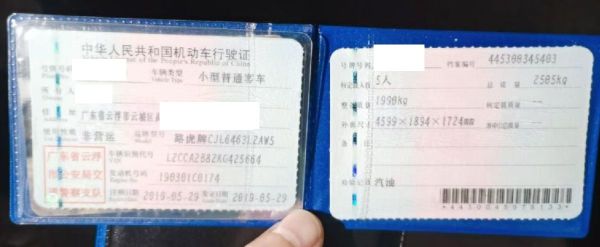 中华人民共和国机动车行驶证
of the People's Republic of China
号牌号码
车辆类型
Vehicle Type
小型普通客车
所有人
住址
广东省云浮市云城区
使用性质
非营运
品牌型号
路虎牌CJL6463L2AW5
广东省云浮
市公安局交
通警察支队
车辆识别代号
VIN
L2CCA2B82KG425664
发动机号码
190301C0174
注册日期
2019-05-29
发证日期
2019-05-29
号牌号码
档案编号
445308345403
核定载人数
5人
总质量
2505kg
整备质量
1990kg
核定载质量
外廓尺寸
4599×1894×1724
检验记录
汽油